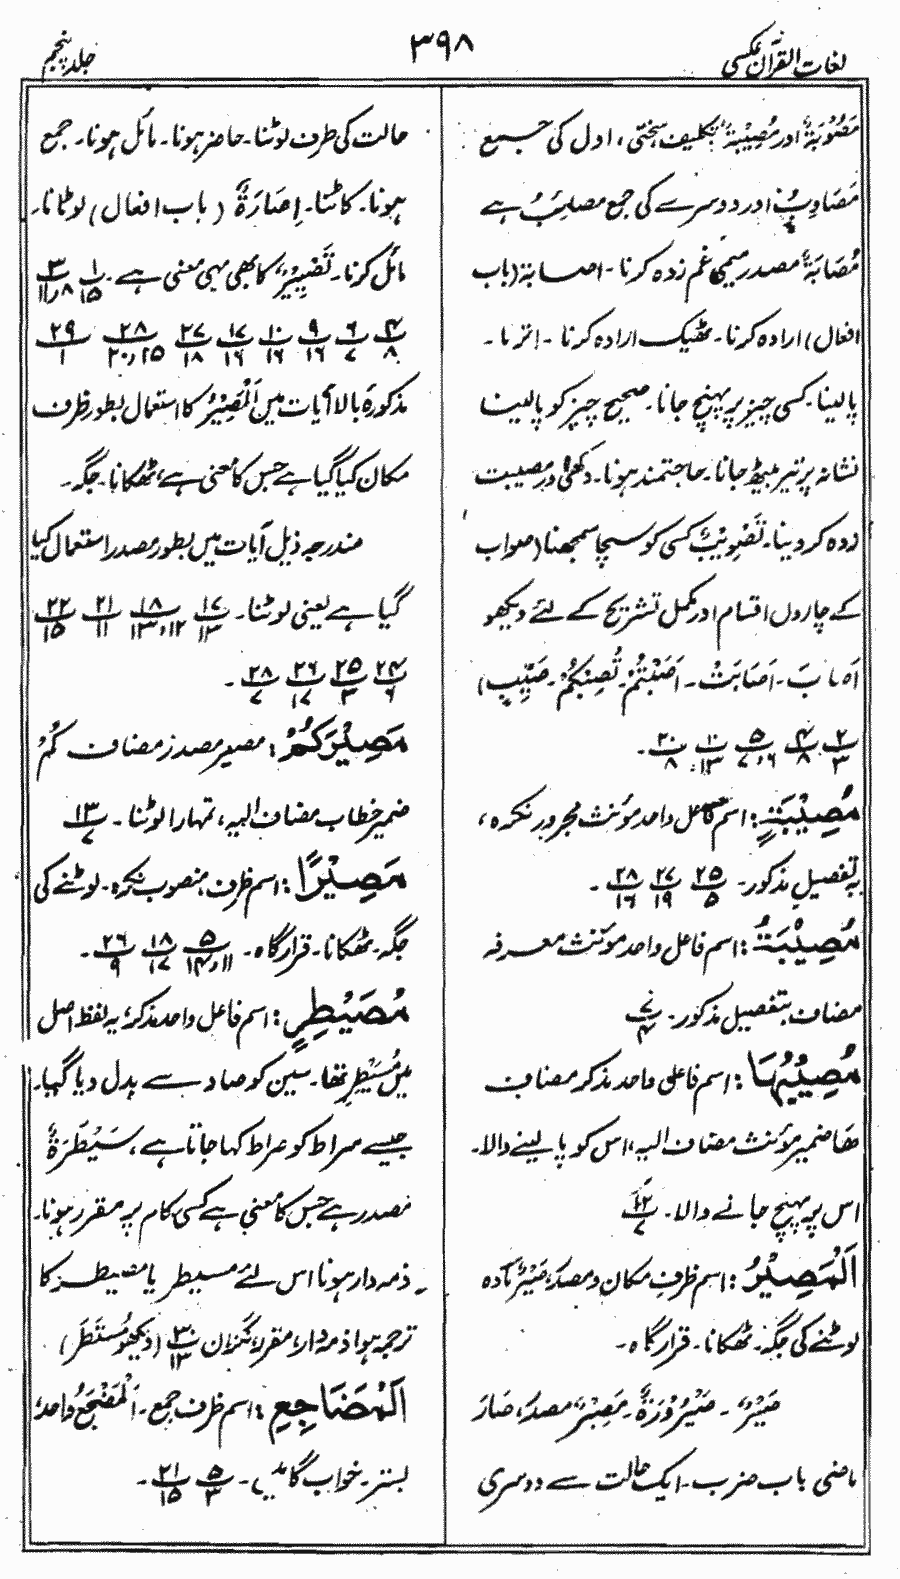 لغات القرآن عکسی
۳۹۸
جلد پنجم
مَصُوْبَةٌ اور مُصِیْبَةٌ تکلیف، سختی، اول کی جمع
مَصَاوِبُ اور دوسرے کی جمع مصائب ہے
مُصَابَةٌ مصدر میمی غم زدہ کرنا۔ اصابة (باب
افعال) ارادہ کرنا۔ ٹھیک ارادہ کرنا۔ اترنا۔
پا لینا۔ کسی چیز پر پہنچ جانا۔ صحیح چیز کو پا لینا
نشانہ پر تیر بیٹھ جانا۔ حاجتمند ہونا۔ دکھی اور مصیبت
زدہ کر دینا۔ تَصْوِیْبٌ کسی کو سچا سمجھنا (صواب
کے چاروں اقسام اور مکمل تشریح کے لئے دیکھو
اَصَابَ۔ اَصَابَتْ۔ اَصَبْتُمْ۔ تُصِبْکُمْ۔ صَیِّبٍ)
۲/۳ ۴/۸ ۵/۶،۷ ۱۰/۱۳ ۲۰/۸ ۔
مُصِیْبَةٍ: اسم فاعل واحد مؤنث مجرور نکرہ،
بہ تفصیل مذکور۔ ۲۵/۵ ۲۷/۱۹ ۲۸/۱۶ ۔
مُصِیْبَةُ: اسم فاعل واحد مؤنث معرفہ
مضاف بتفصیل مذکور۔ ۲۰/۴
مُصِیْبُهَا: اسم فاعل واحد مذکر مضاف
ھَا ضمیر مؤنث مضاف الیہ، اس کو پا لینے والا۔
اس پر پہنچ جانے والا۔ ۱۲/۷
اَلْمَصِیْرُ: اسم ظرف مکان و مصدر، صَیْرٌ مادہ
لوٹنے کی جگہ۔ ٹھکانا۔ قرار گاہ۔
صَیْرٌ۔ صَیْرُوْرَةٌ۔ مَصِیْرٌ مصدر، صَارَ
ماضی باب ضرب۔ ایک حالت سے دوسری
حالت کی طرف لوٹنا۔ حاضر ہونا۔ مائل ہونا۔ جمع
ہونا۔ کاٹنا۔ اِصَارَةٌ (باب افعال) لوٹانا۔
مائل کرنا۔ تَصْیِیْرٌ کا بھی یہی معنی ہے۔ ۱/۱۵ ۳/۱۱،۸
۴/۸ ۶/۷ ۹/۱۶ ۱۰/۱۶ ۱۷/۱۶ ۲۷/۱۸ ۲۸/۲۰،۱۵ ۲۹/۱
مذکورہ بالا آیات میں اَلْمَصِیْرُ کا استعمال بطور ظرف
مکان کیا گیا ہے جس کا معنی ہے، ٹھکانا۔ جگہ۔
مندرجہ ذیل آیات میں بطور مصدر استعمال کیا
گیا ہے یعنی لوٹنا۔ ۱۷/۱۳ ۱۸/۱۳،۱۲ ۲۱/۱۱ ۲۲/۱۵
۲۴/۶ ۲۵/۳ ۲۶/۱۷ ۲۸/۷ ۔
مَصِیْرَکُمْ: مصیر مصدر مضاف کُمْ
ضمیر خطاب مضاف الیہ، تمہارا لوٹنا۔ ۱۳/۷
مَصِیْرًا: اسم ظرف، منصوب نکرہ۔ لوٹنے کی
جگہ۔ ٹھکانا۔ قرار گاہ۔ ۵/۱۴،۱۱ ۱۸/۱۷ ۲۶/۹ ۔
مُصَیْطِرٍ: اسم فاعل واحد مذکر، یہ لفظ اصل
میں مُسَیْطِرٍ تھا۔ سین کو صاد سے بدل دیا گیا۔
جیسے سراط کو صراط کہا جاتا ہے، سَیْطَرَةٌ
مصدر ہے جس کا معنی ہے کسی کام پر مقرر ہونا۔
ذمہ دار ہونا اس لئے مسیطر یا مصیطر کا
ترجمہ ہوا ذمہ دار، مقررہ نگران ۳۰/۱۳ (دیکھو مُسْتَطَر)
اَلْمَضَاجِعِ: اسم ظرف جمع۔ اَلْمَضْجَعُ واحد،
بستر۔ خواب گاہیں۔ ۵/۳ ۲۱/۱۵ ۔